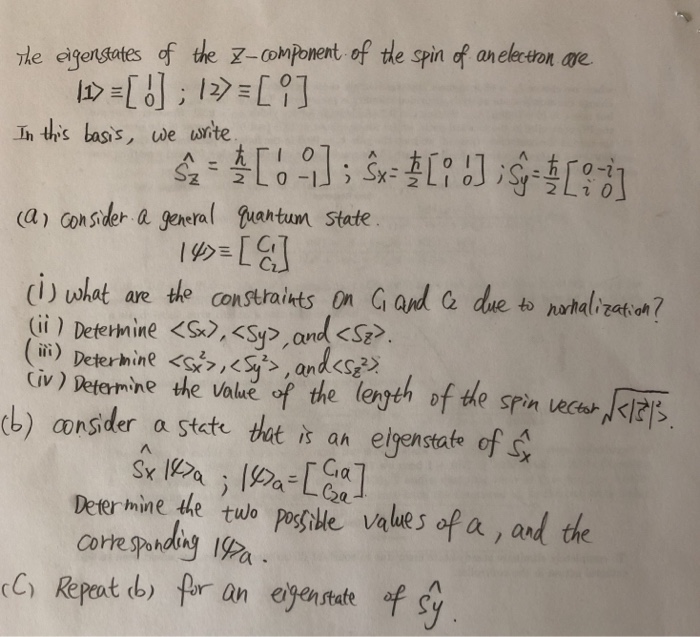 The eigenstates of the Z-component of the spin of an electron are
|1> ≡ [1 0] ; |2> ≡ [0 1]
In this basis, we write.
Ŝz = ħ/2 [1 0 0 -1] ; Ŝx = ħ/2 [0 1 1 0] ; Ŝy = ħ/2 [0 -i i 0]
(a) consider a general quantum state.
|ψ> ≡ [C1 C2]
(i) what are the constraints on C1 and C2 due to normalization?
(ii) Determine <Sx>, <Sy>, and <Sz>.
(iii) Determine <Sx²>, <Sy²>, and <Sz²>.
(iv) Determine the value of the length of the spin vector √<|S⃗|²>.
(b) consider a state that is an eigenstate of Ŝx
Ŝx |ψ>a ; |ψ>a = [C1a C2a]
Determine the two possible values of a, and the
corresponding |ψ>a.
(C) Repeat (b) for an eigenstate of Ŝy.